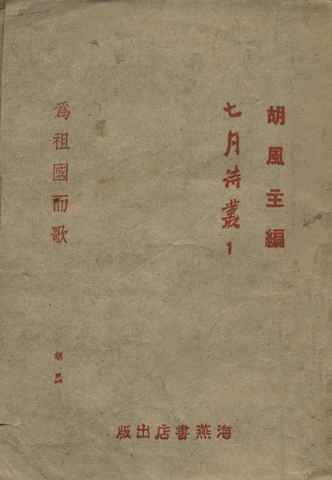 胡風主編
七月詩叢
1
爲祖國而歌
胡風
海燕書店出版